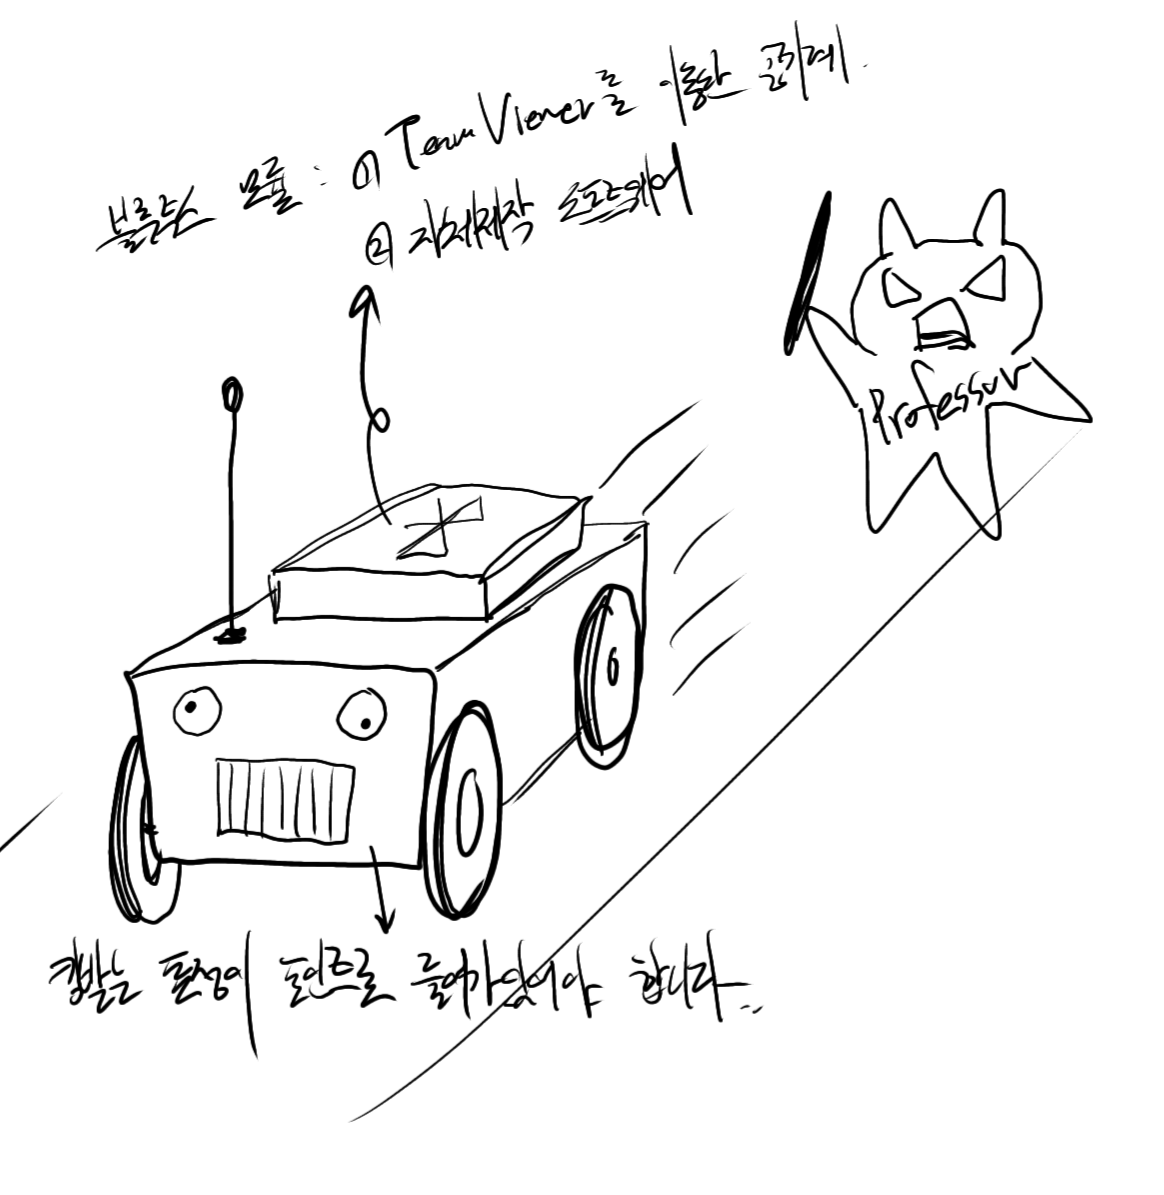 블루투스 모듈 : ① TeamViewer를 이용한 공기계.
② 자체제작 소프트웨어
Professor
깅발는 표정이 포인트로 들어가있어야 합니다...